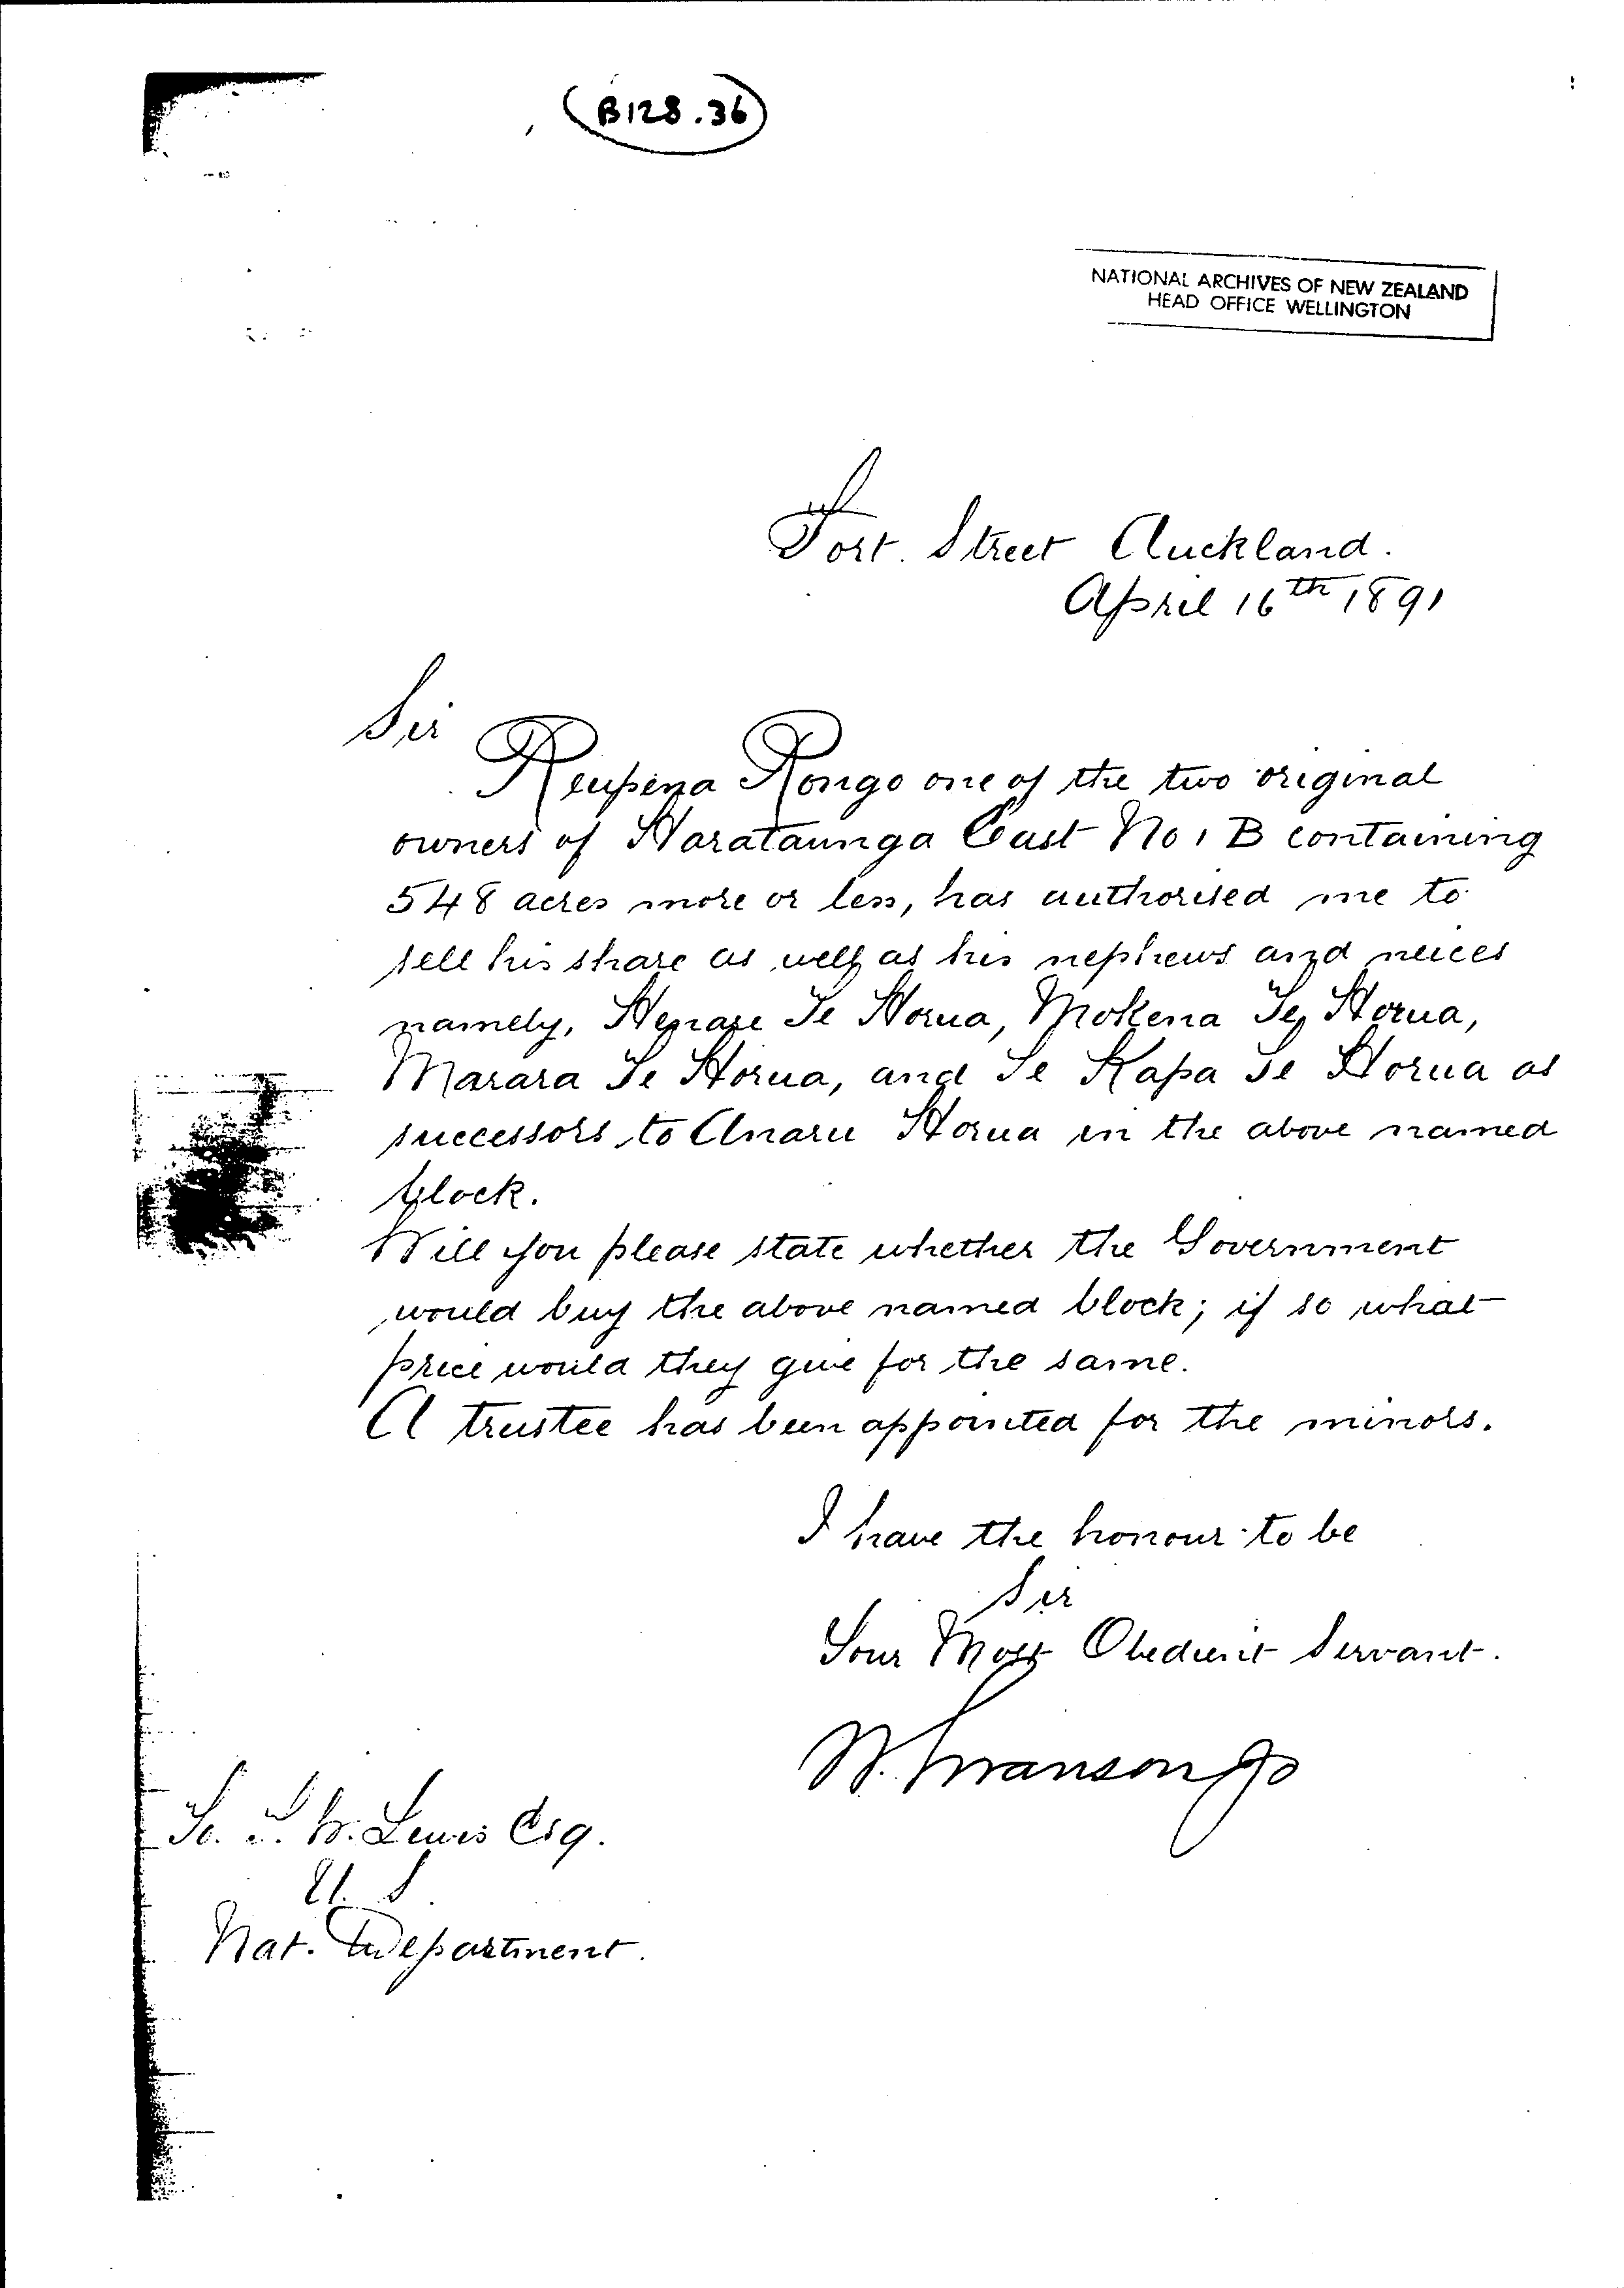 B128.36
NATIONAL ARCHIVES OF NEW ZEALAND
HEAD OFFICE WELLINGTON
Fort Street Auckland.
April 16th 1891
Sir
Reupena Rongo one of the two original
owners of Harataunga East No 1 B containing
548 acres more or less, has authorised me to
sell his share as well as his nephews and neices
namely, Henare Te Horua, Mokena Te Horua,
Marara Te Horua, and Te Kapa Te Horua as
successors to Anaru Horua in the above named
block.
Will you please state whether the Government
would buy the above named block; if so what
price would they give for the same.
A trustee has been appointed for the minors.
I have the honour to be
Sir
Your Most Obedient Servant.
W. Swanson
To. T. W. Lewis Esq.
U. S.
Nat. Department.